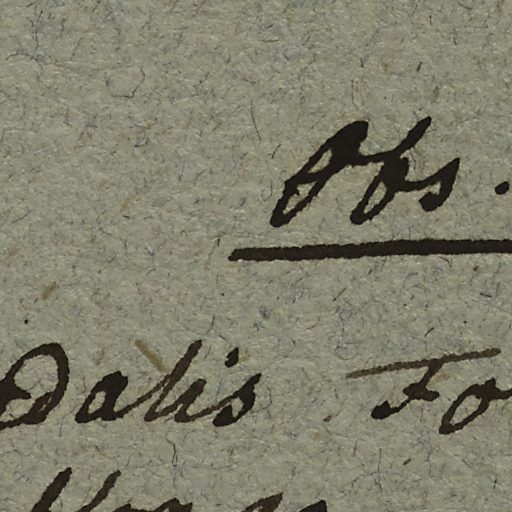 Obs.
Dalis Fo